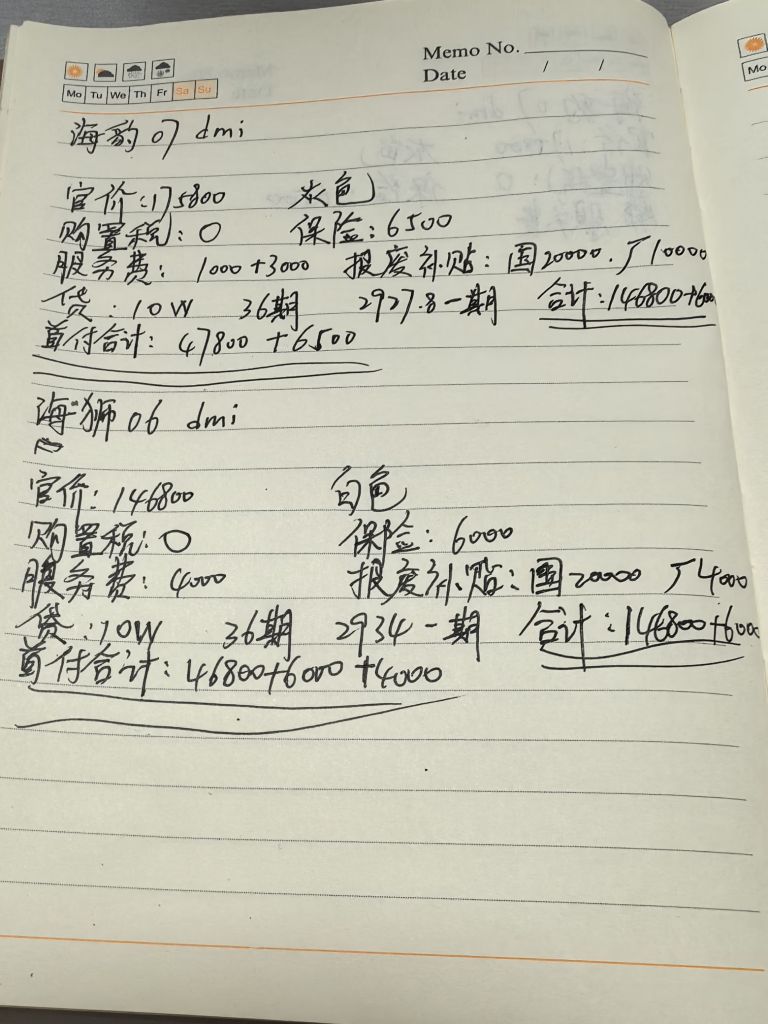 Memo No.
Date / /
Mo Tu We Th Fr Sa Su
Mo
海豹07 dmi
官价:175800 灰色
购置税:0 保险:6500
服务费: 1000+3000 报废补贴: 国20000. 厂10000
贷:10W 36期 2927.8一期 合计:146800+6500
首付合计: 47800 +6500
海狮06 dmi
官价:146800 白色
购置税:0 保险:6000
服务费:4000 报废补贴:国20000 厂4000
贷:10W 36期 2934一期 合计:146800+6000
首付合计:46800+6000+4000